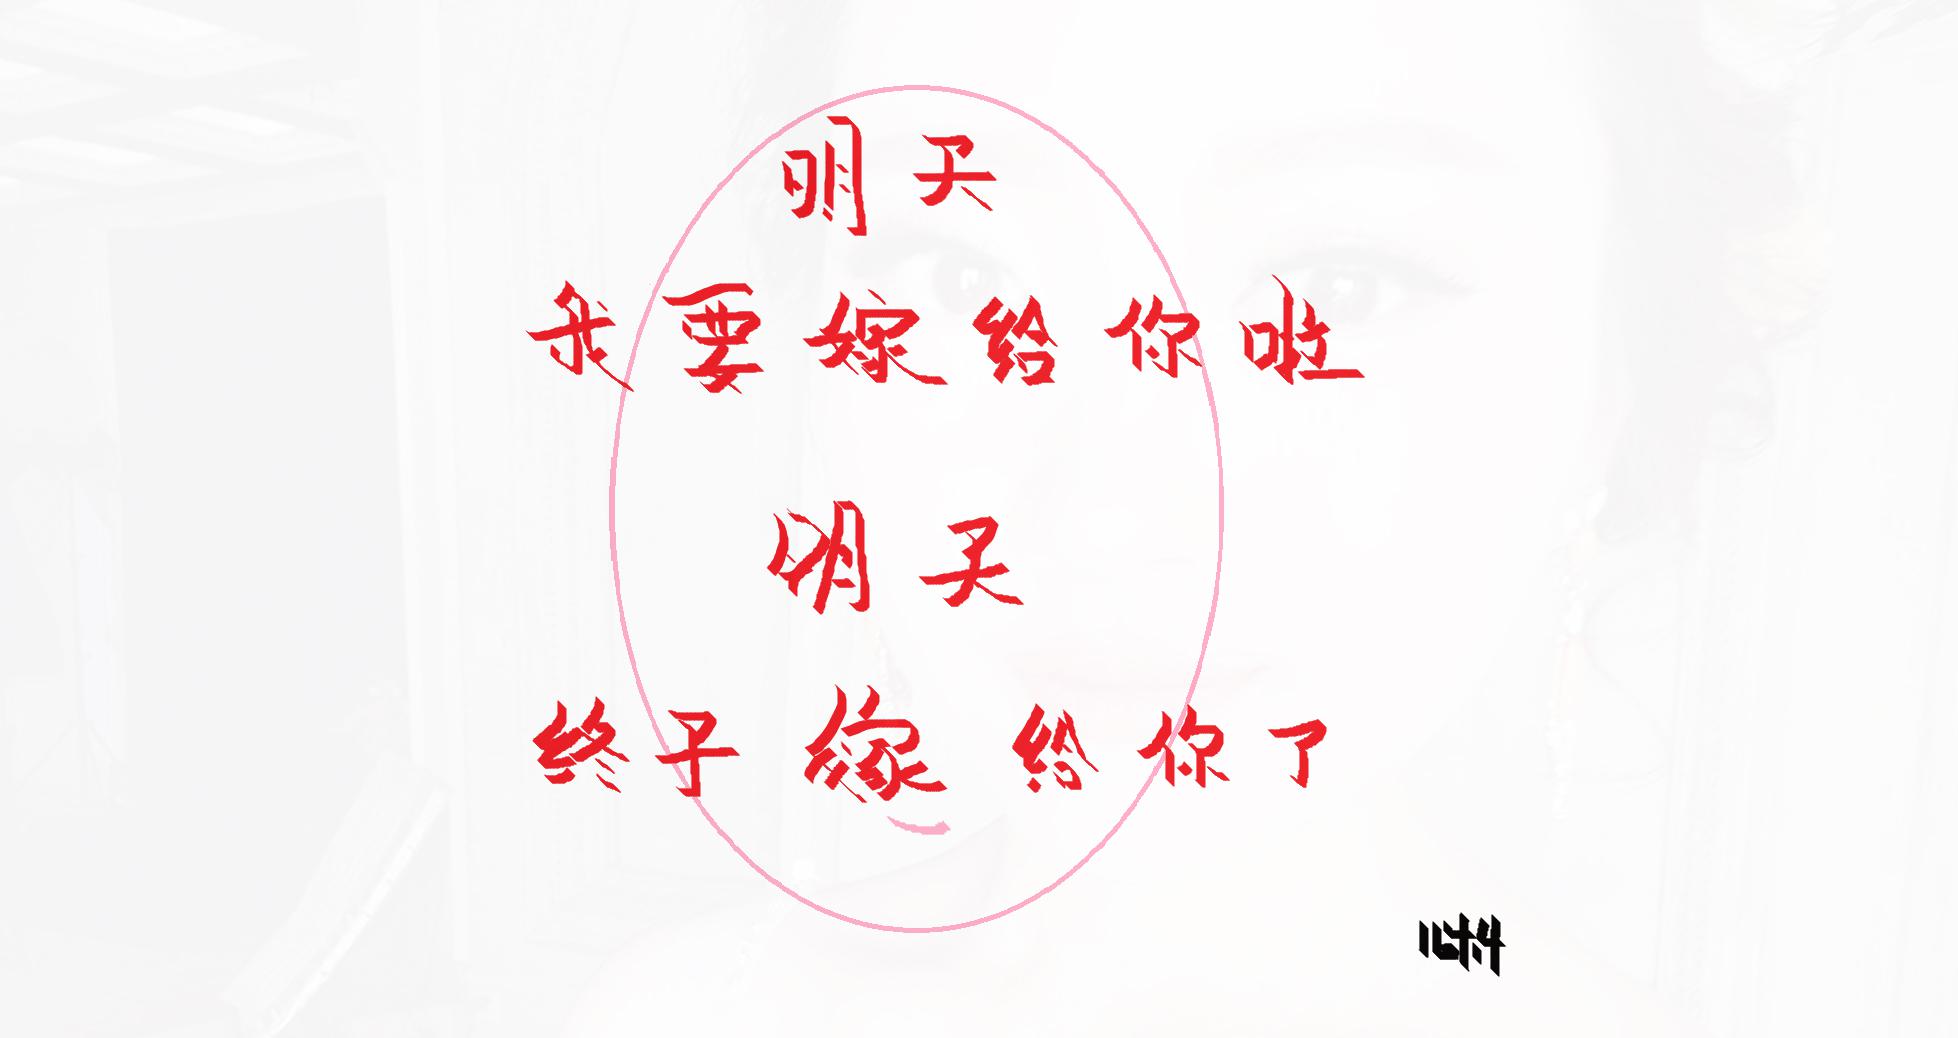 明天
我要嫁给你啦
明天
终于嫁给你了